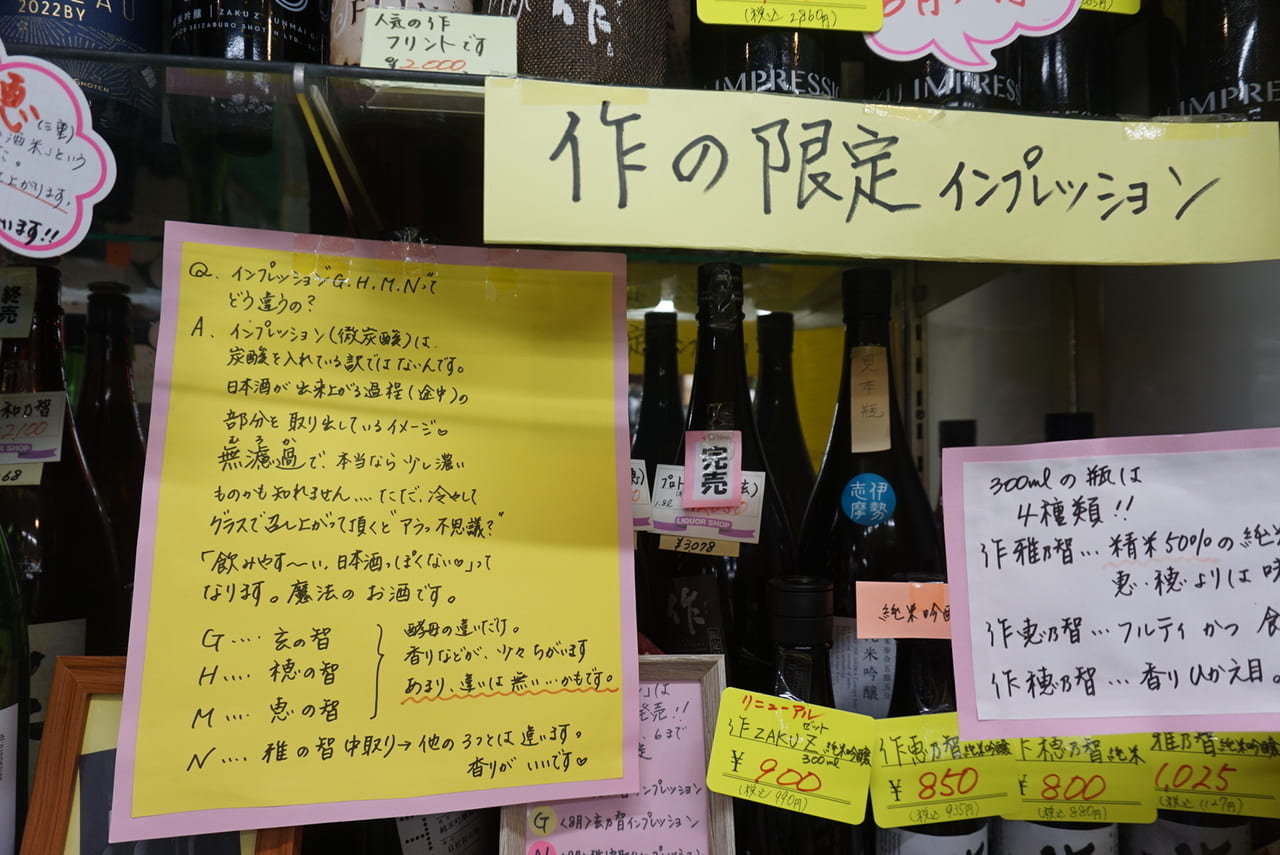 2022BY
ZAKU Z
SEIZABURO SHOT
人気の作
プリントです
¥2,000
作
(税込 2860円)
IMPRESSI
KU IMPRESSIO
IMPRES
恵
(三重)
酒米」という
上がります。
います!!
作の限定 インプレッション
Q. インプレッションG.H.M.Nって
どう違うの?
A. インプレッション(微炭酸)は、
炭酸を入れている訳ではないんです。
日本酒が出来上がる過程(途中)の
部分を取り出しているイメージ♡
むろか
無濾過で、本当なら少し濃い
ものかも知れません....ただ、冷やして
グラスで召し上がって頂くと"アラっ不思議?"
「飲みやす〜い。日本酒っぽくない♡」って
なります。魔法のお酒です。
G .... 玄の智
H .... 穂の智
M .... 恵の智
酵母の違いだけ。
香りなどが、少々ちがいます
あまり、違いは無い...かもです。
N .... 雅の智中取り→他の3つとは違います。
香りがいいです♡
終売
和乃智
2,100
SHOP
68
見本瓶
完売
プロト
1.8L
LIQUOR SHOP
¥3078
伊勢
志摩
作
純米吟醸
米吟醸
300mlの瓶は
4種類!!
作雅乃智...精米50%の純米
恵・穂よりは味
作恵乃智...フルティかつ 食
作穂乃智...香りひかえ目。
リニューアル
ゼット
作ZAKU Z 純米吟醸
300ml
¥900
(税込 990円)
作恵乃智 純米吟醸
¥850
(税込 935円)
作穂乃智 純米
¥800
(税込 880円)
雅乃智 純米吟醸
1,025
(税込 1127円)
は
発売!!
6まで
定
インプレッション
G <8月>玄乃智インプレッション
N